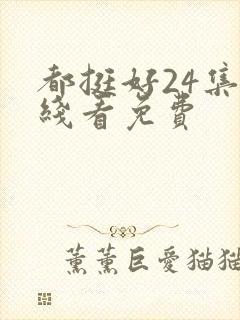 都挺好24集
綫看免費
薰薰巨愛猫猫